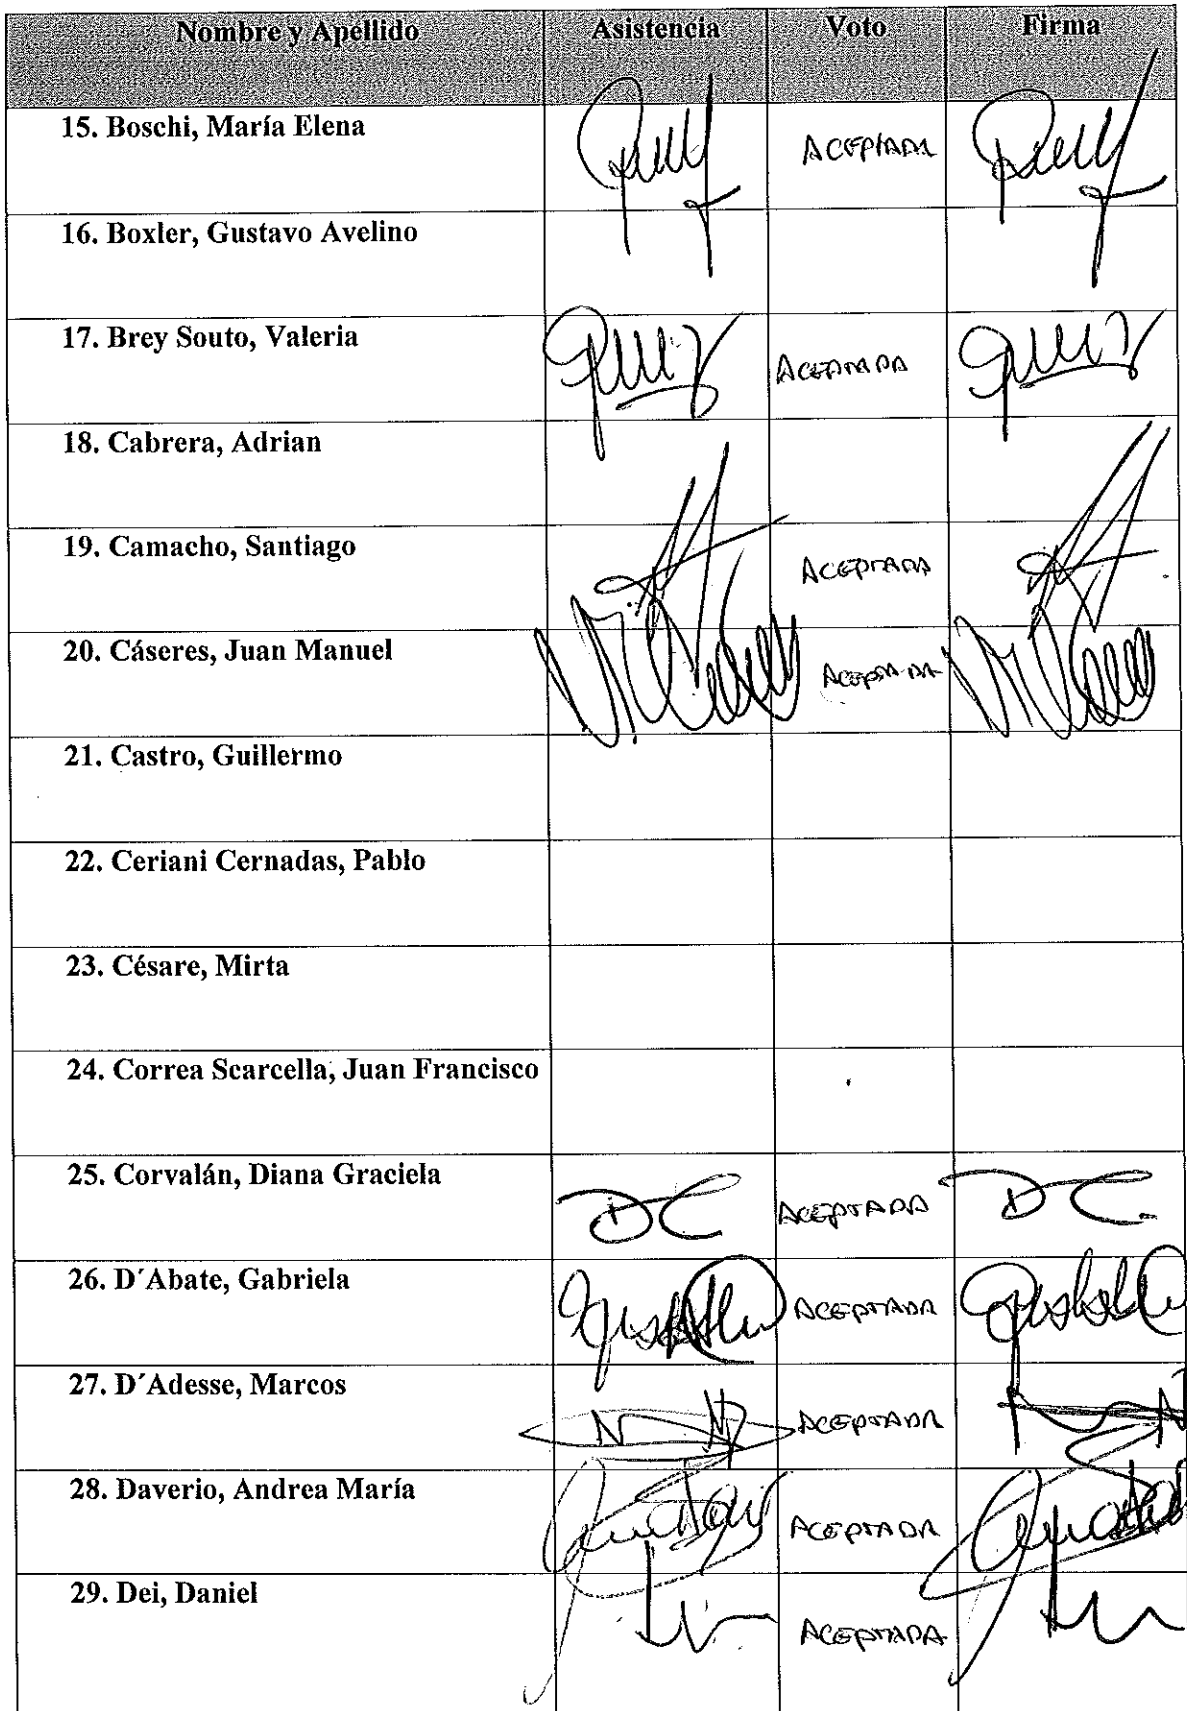 Nombre y Apellido Asistencia Voto Firma
15. Boschi, María Elena ACEPTADA
16. Boxler, Gustavo Avelino
17. Brey Souto, Valeria ACEPTADA
18. Cabrera, Adrian
19. Camacho, Santiago ACEPTADA
20. Cáseres, Juan Manuel ACEPTADA
21. Castro, Guillermo
22. Ceriani Cernadas, Pablo
23. Césare, Mirta
24. Correa Scarcella, Juan Francisco
25. Corvalán, Diana Graciela DC ACEPTADA DC
26. D´Abate, Gabriela ACEPTADA
27. D´Adesse, Marcos ACEPTADA
28. Daverio, Andrea María ACEPTADA
29. Dei, Daniel ACEPTADA